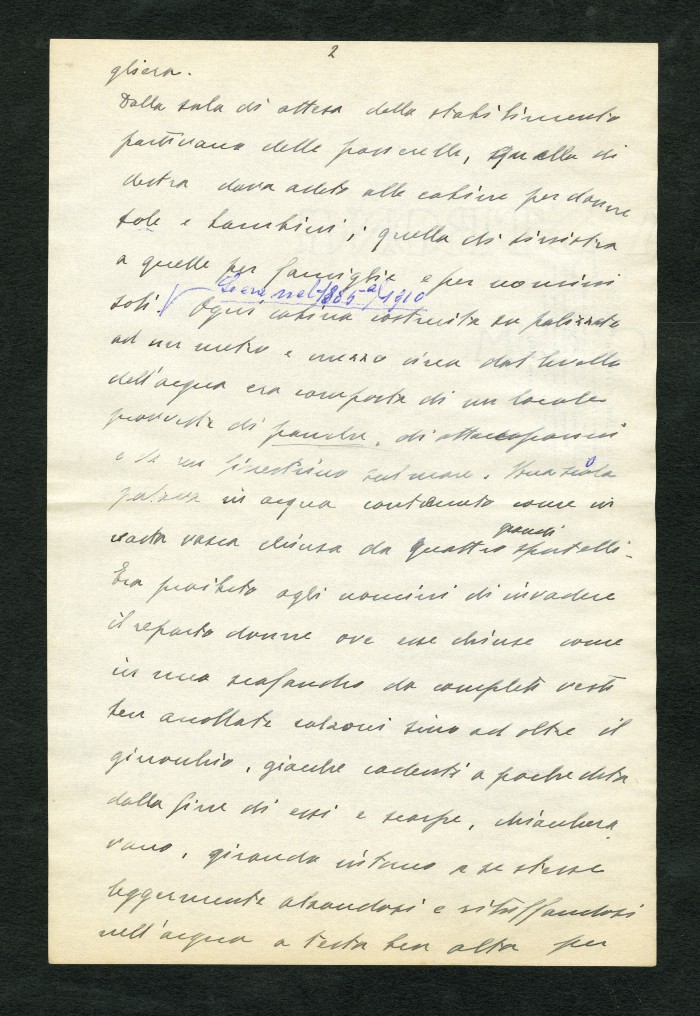 2
gliera.
Dalla sala di attesa dello stabilimento
partivano delle passerelle, quella di
destra dava adito alle cabine per donne
sole e bambini; quella di sinistra
a quelle per famiglie e per uomini
Si era nel 1885-1910
soli. Ogni cabina costruita su palizzata
ad un metro e mezzo circa dal livello
dell'acqua era composta di un locale
provvista di panche, di attaccapanni
e di un finestrino sul mare. Una scala
in acqua contenuta come in
vasta vasca chiusa da quattro grandi sportelli.
Era proibito agli uomini di invadere
il reparto donne ove esse chiuse come
in uno scafandro da completi vesti
ben accollate calzoni sino ad oltre il
ginocchio, giacche cadenti a poche dita
dalla fine di essi e scarpe,
vano, girando intorno a se stesse
leggermente alzandosi e rituffandosi
nell'acqua a testa ben alta per